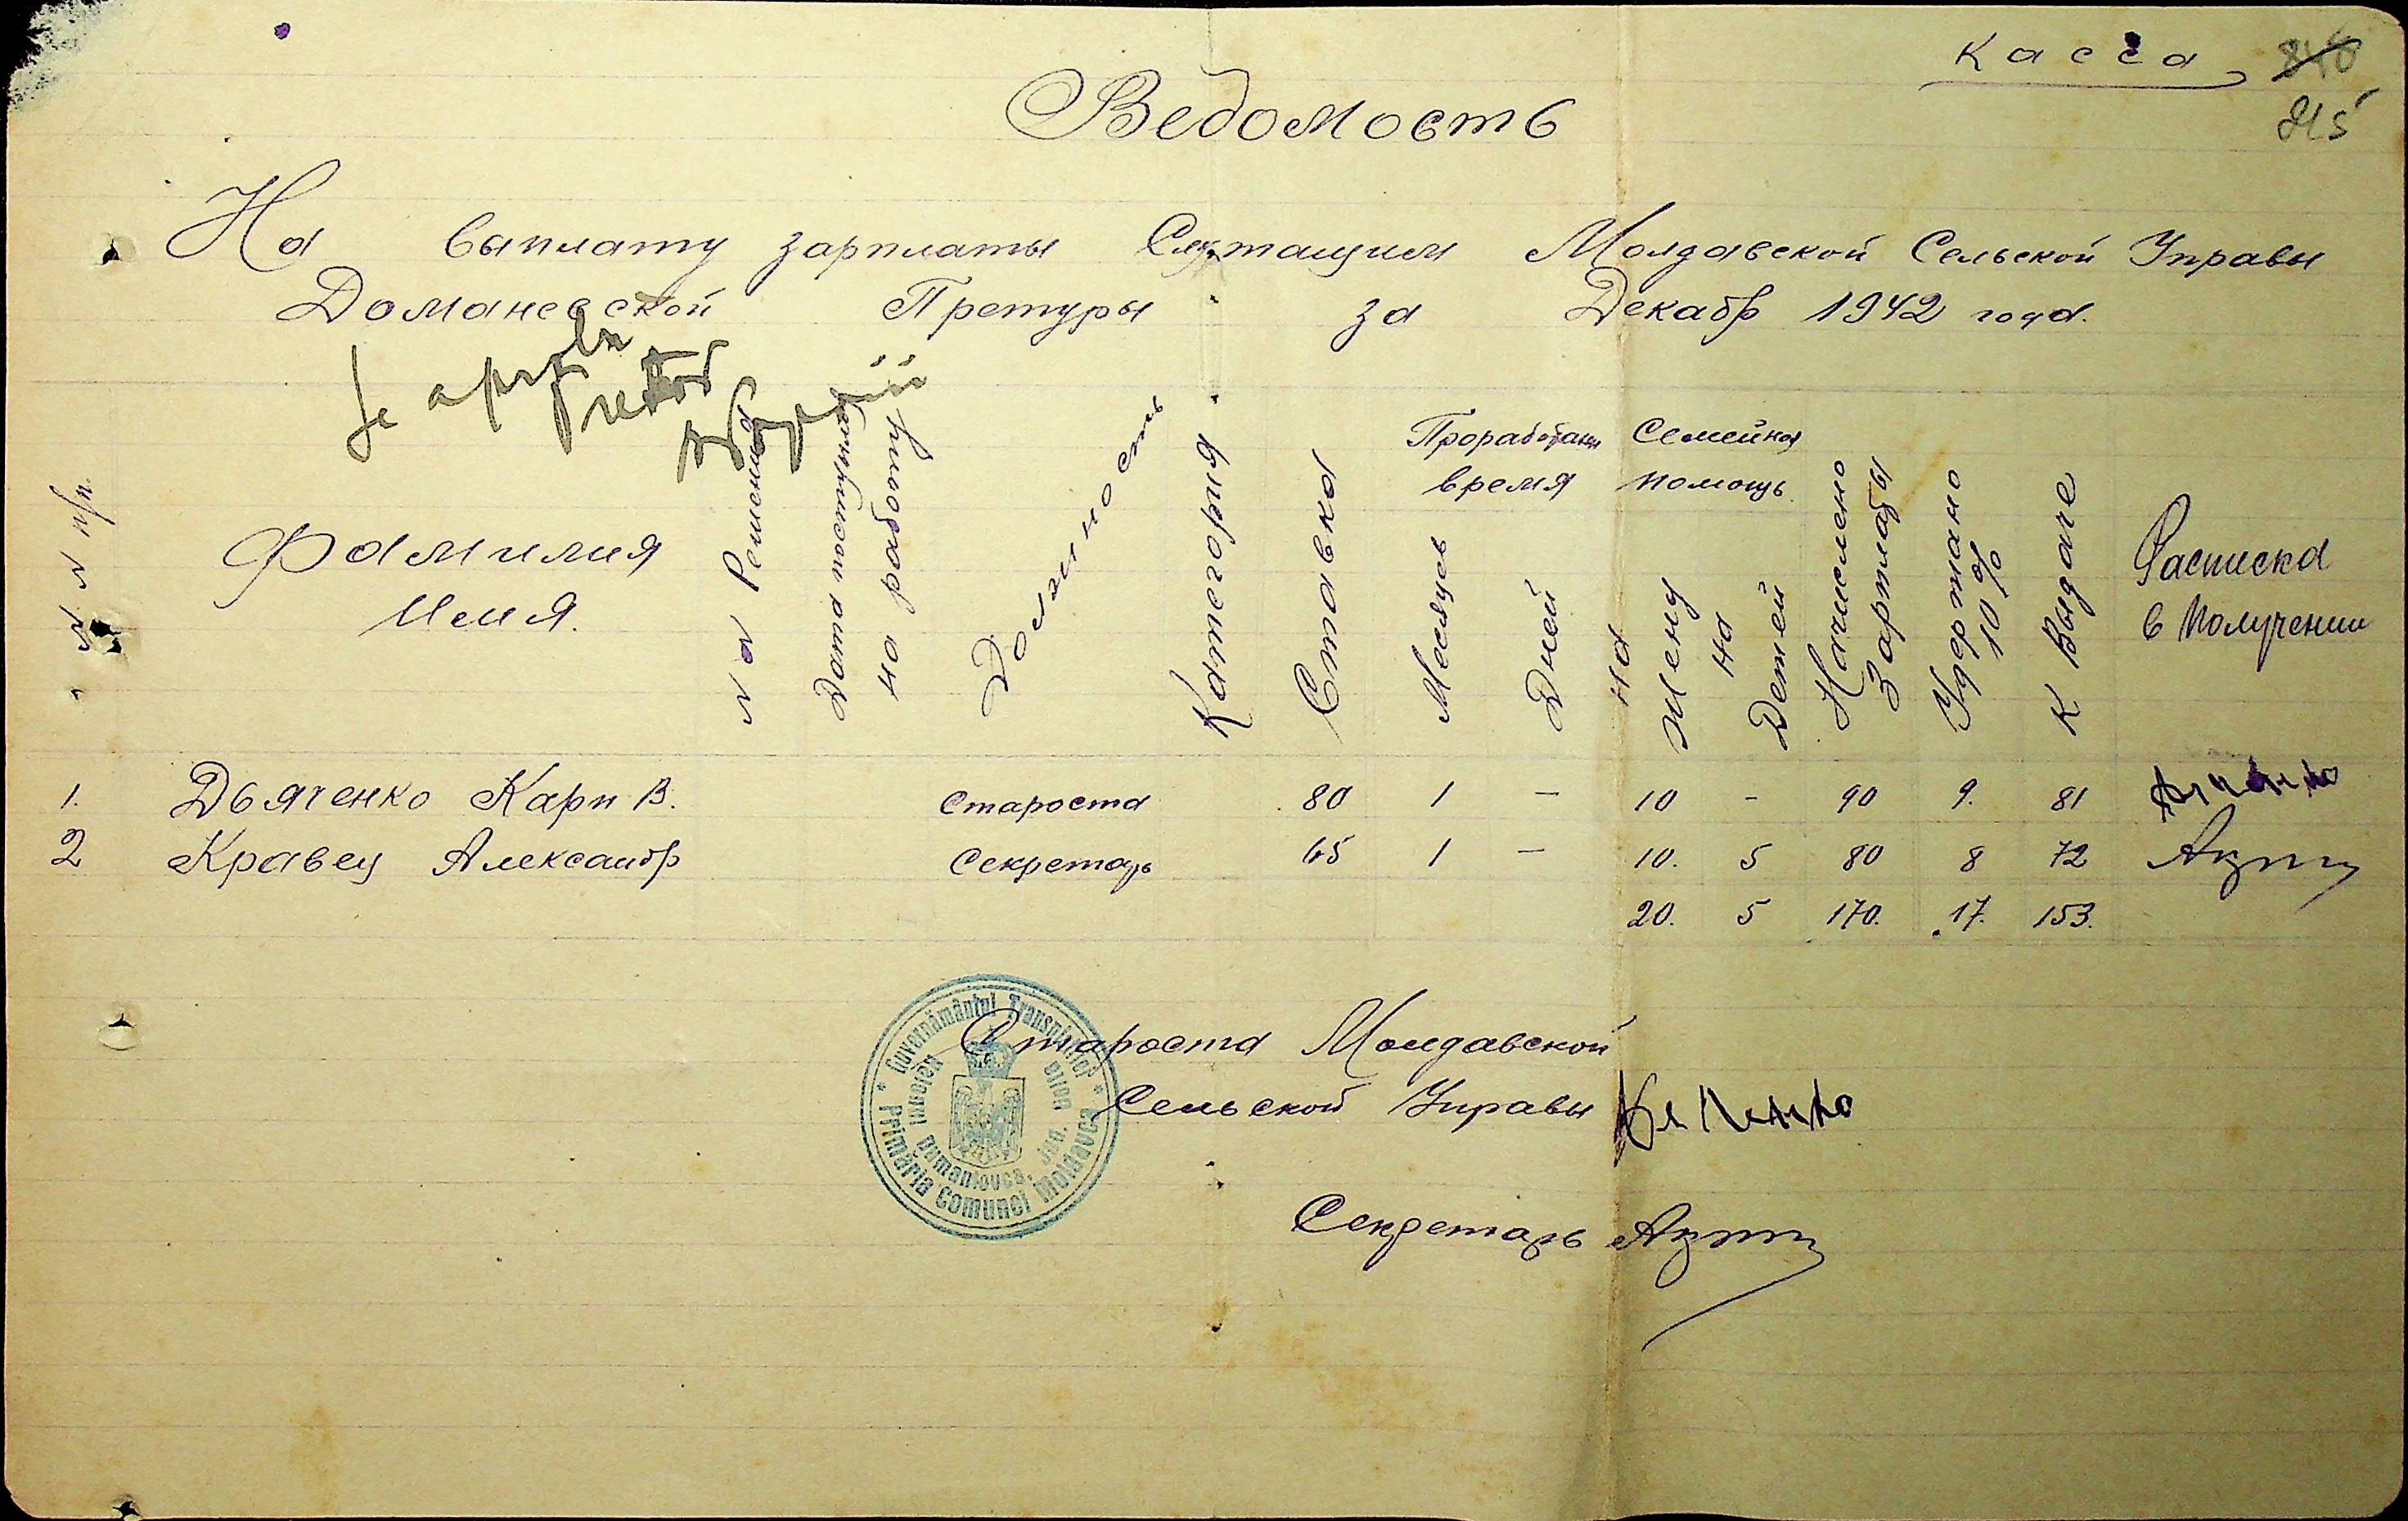 Касса
215
Ведомость
На выплату зарплаты Служащим Молдавской Сельской Управы
Доманевской Претуры за Декабр 1942 года.
Se aprobă
Pretor
№ № п/п.
Фамилия
Имя.
№ Решения
Дата поступления
на работу
Должность
Категория
Ставка
Проработан
время
Месяцев
Дней
Семейная
помощь
на
Жену
на
Детей
Начислено
Зарплаты
Удержано
10%
К Выдаче
Расписка
в Получении
1. Дьяченко Карп В. Староста 80 1 — 10 - 90 9. 81
2 Кравец Александр Секретарь 65 1 — 10. 5 80 8 72
20. 5 170. 17. 153.
Староста Молдавской
Сельской Управы
Секретарь
Guvernământul Transnistriei
Primăria comunei Moldavca
Raionul Dumaniovca, Jud. Golta